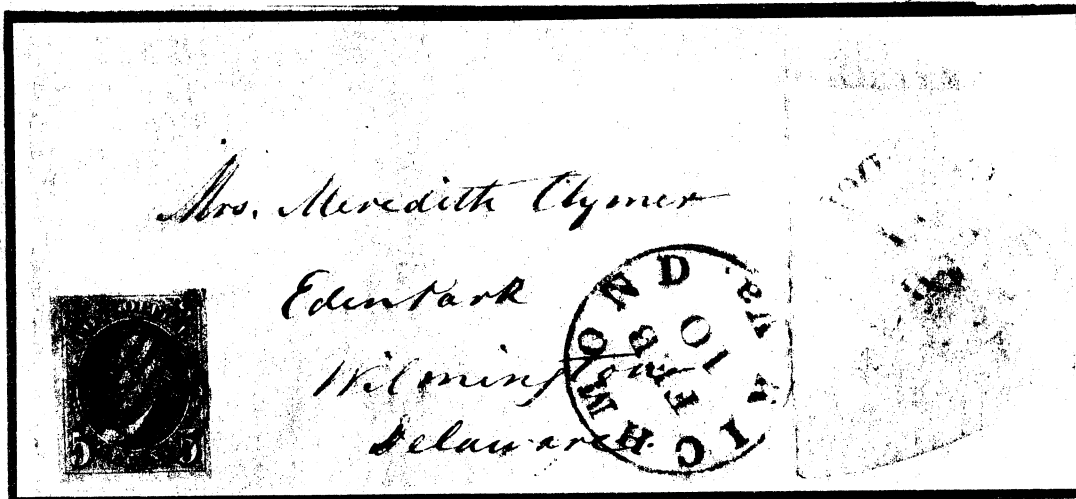 Mrs. Meredith Clymer
Eden Park
Wilmington
Delaware.
RICHMOND Va.
FEB
10
5 5